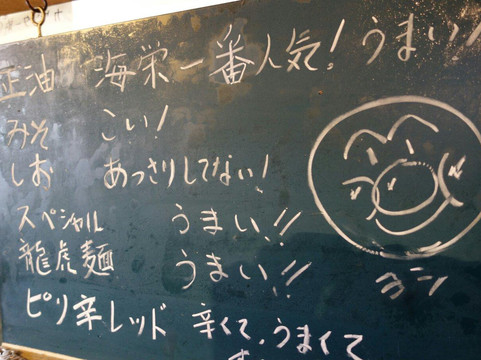 正油 海栄一番人気！うまい！！
みそ こい！
しお あっさりしてない！
スペシャル うまい！！
龍虎麺 うまい！！
ピリ辛レッド 辛くて、うまくて